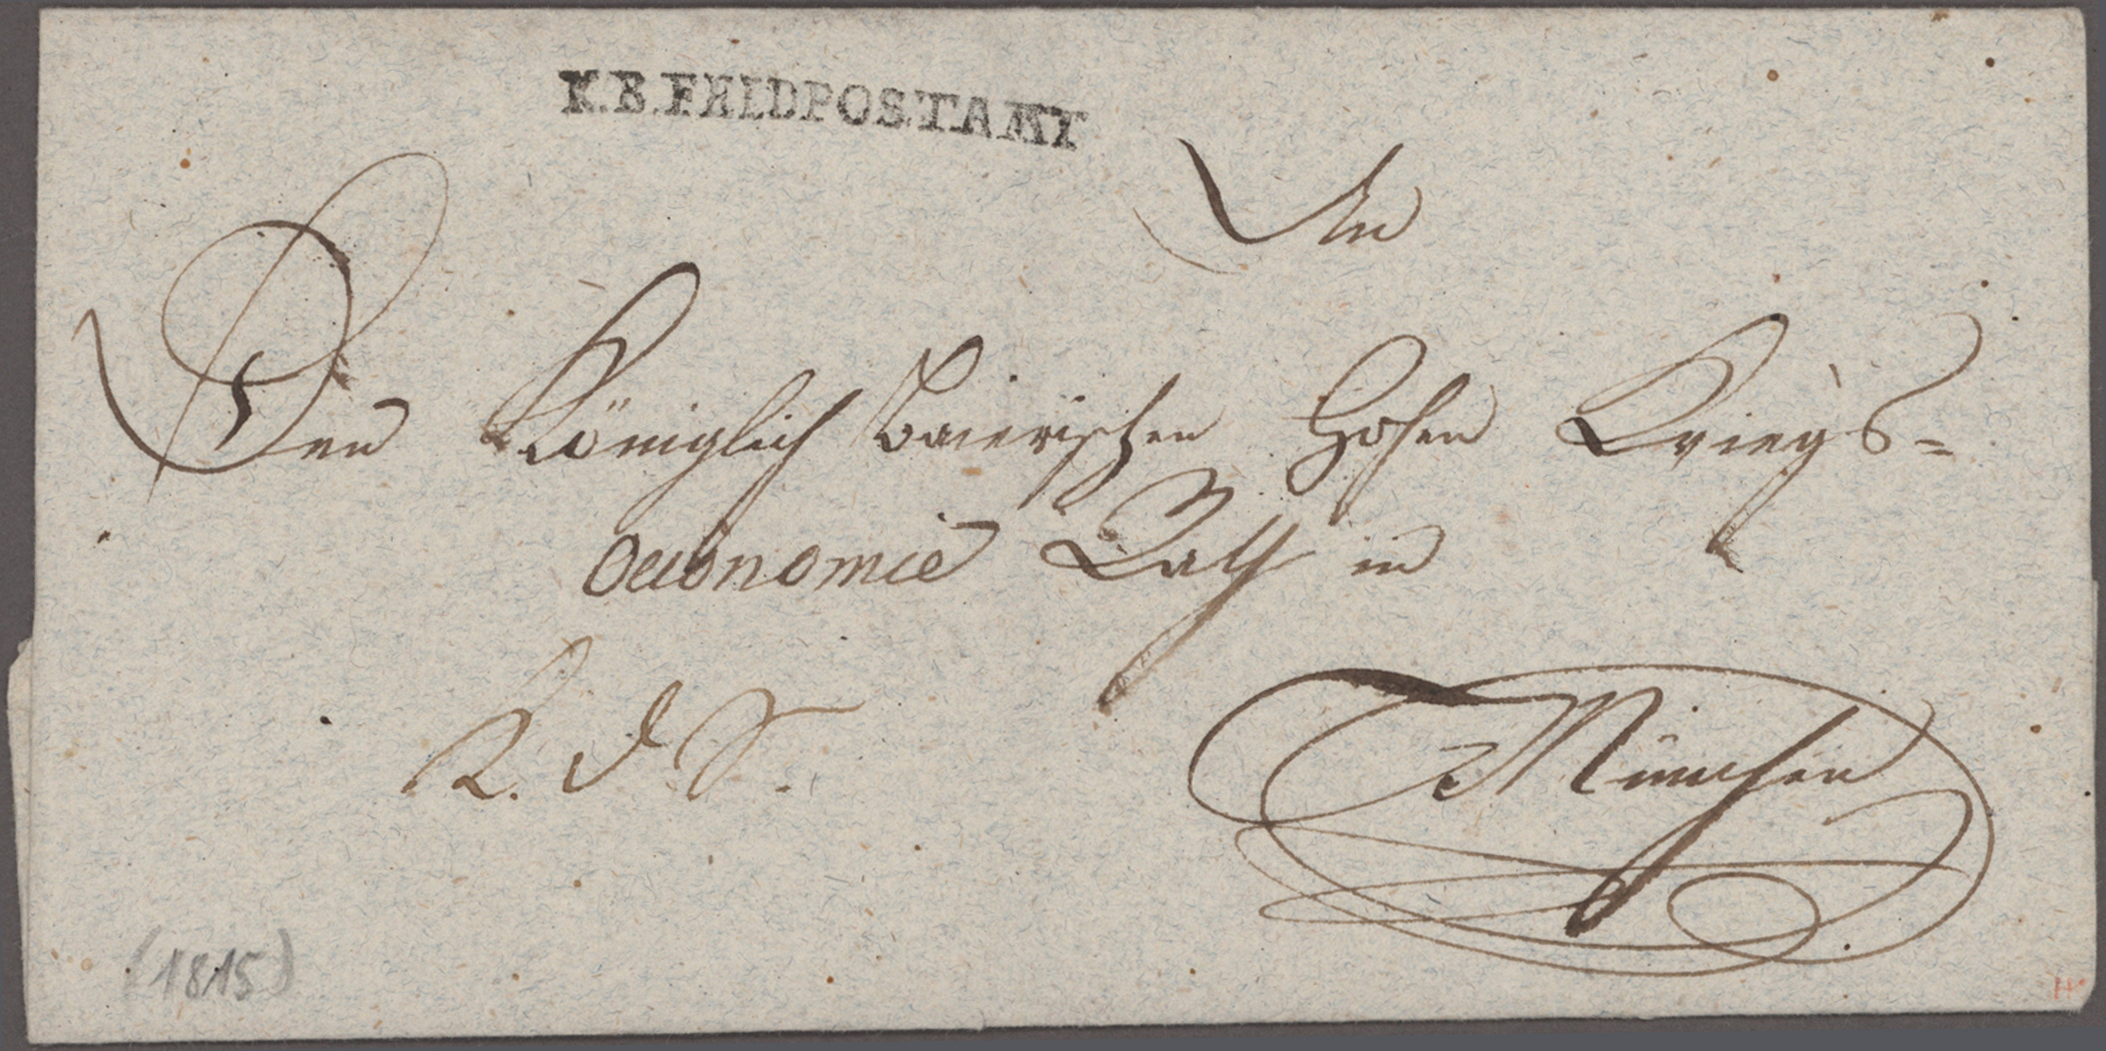 K.B.FELDPOSTAMT
An
Den Königlich Baierischen Hohen Kriegs=
Oeconomie Rath in
R. d. S.
München
(1815)